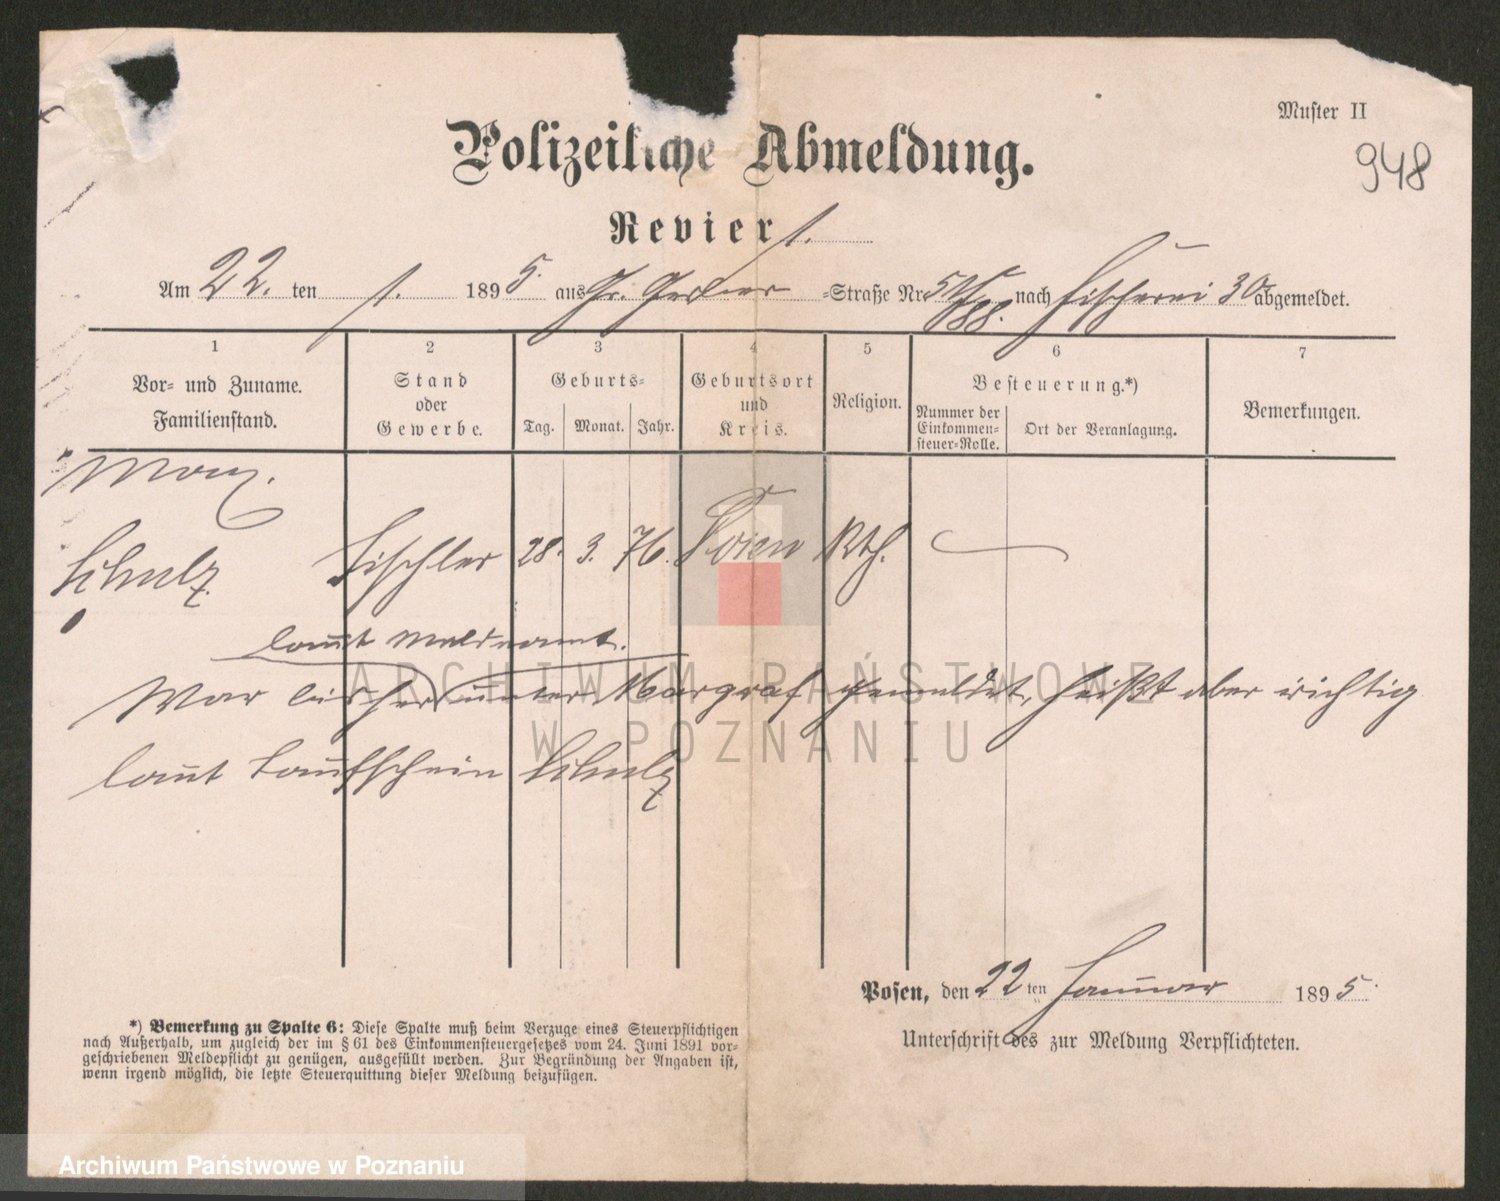 Muster II
948
Polizeiliche Abmeldung.
Revier 1.
Am 22. ten 1. 1895. aus Gr. Gerber -Straße Nr. nach Fischerei 30 abgemeldet.
1 2 3 4 5 6 7
Vor- und Zuname. Familienstand.
Stand oder Gewerbe.
Geburts- Tag. Monat. Jahr.
Geburtsort und Kreis.
Religion.
Besteuerung.*)
Nummer der Einkommensteuer-Rolle.
Ort der Veranlagung.
Bemerkungen.
Schulz Tischler 28. 3. 76. Posen Kth.
laut Meldeamt.
War bisher unter Margraf gemeldet, heißt aber richtig
laut Taufschein Schulz
Posen, den 22 ten Januar 1895.
Unterschrift des zur Meldung Verpflichteten.
*) Bemerkung zu Spalte 6: Diese Spalte muß beim Verzuge eines Steuerpflichtigen
nach Außerhalb, um zugleich der im § 61 des Einkommensteuergesetzes vom 24. Juni 1891 vor-
geschriebenen Meldepflicht zu genügen, ausgefüllt werden. Zur Begründung der Angaben ist,
wenn irgend möglich, die letzte Steuerquittung dieser Meldung beizufügen.
ARCHIWUM PAŃSTWOWE
W POZNANIU
Archiwum Państwowe w Poznaniu